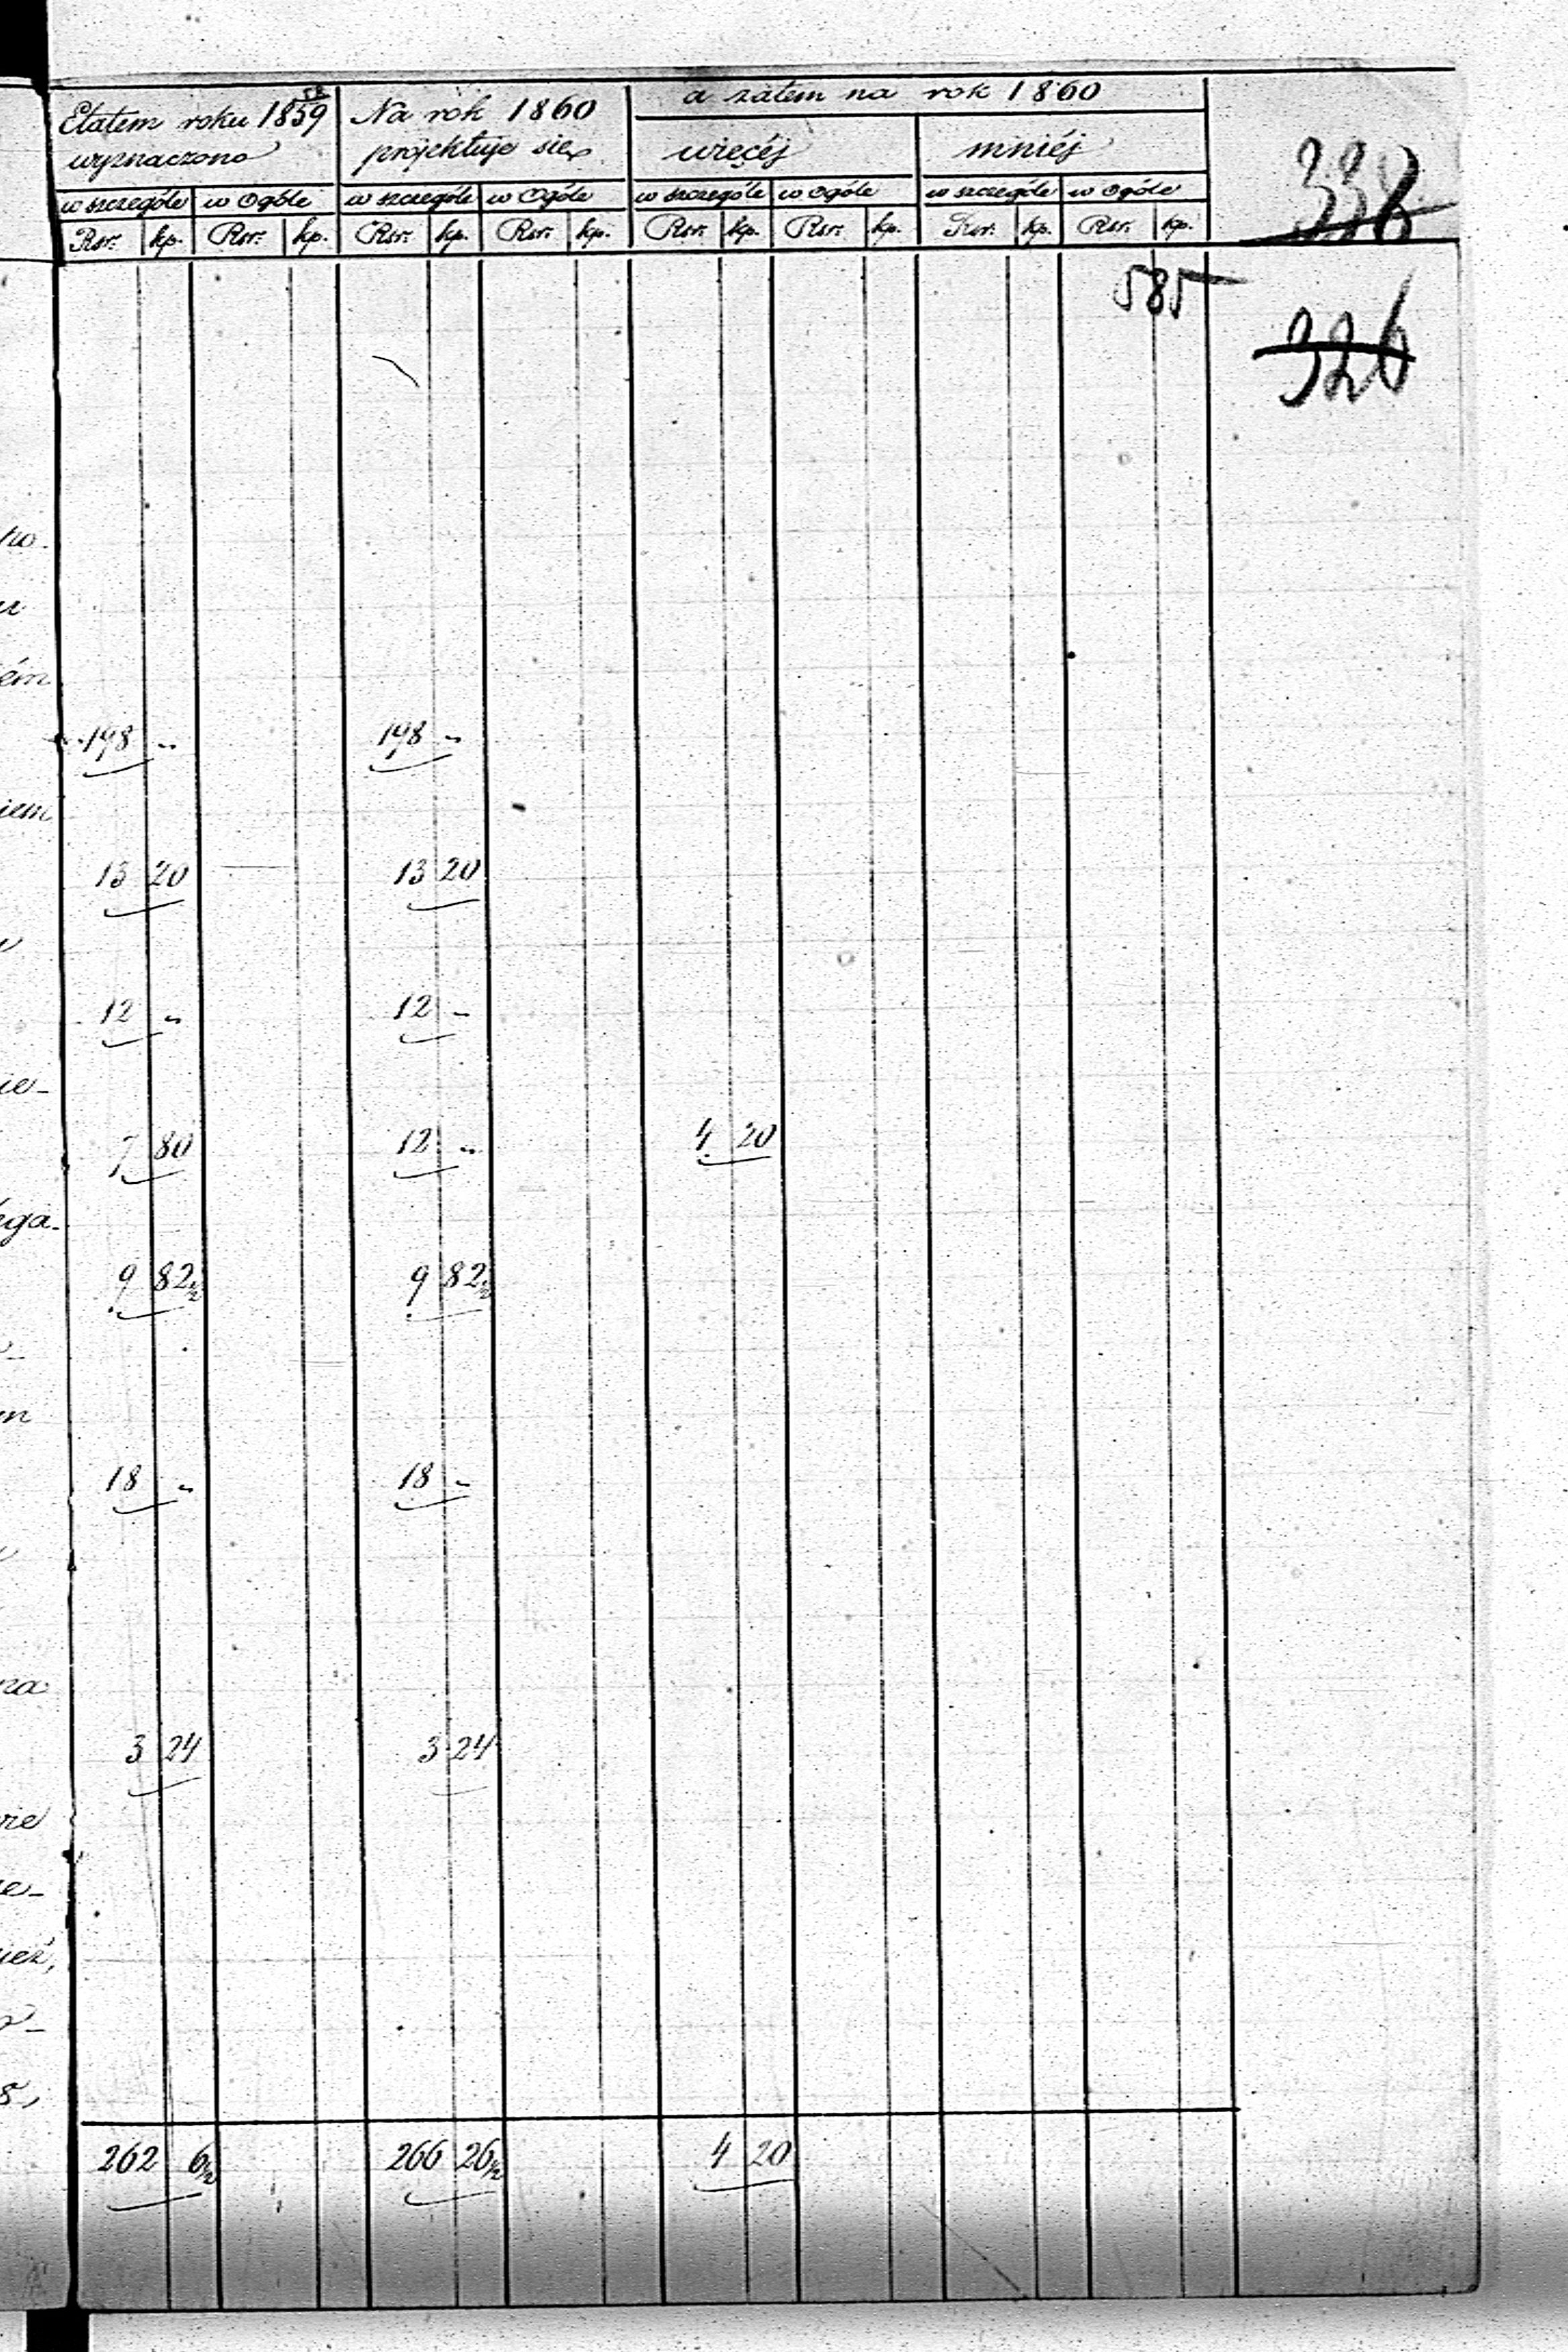 58
Etatem roku 1859 Na rok 1860 a zatem na rok 1860
wyznaczono projektuje się więcéj mniéj
w szczególe w Ogóle w szczególe w Ogóle w szczególe w ogóle w szczególe w ogóle
Rsr. kp. Rsr. kp. Rsr. kp. Rsr. kp. Rsr. kp. Rsr. kp. Rsr. kp. Rsr. kp.
338
585
326
ém
198 " 198 "
iem
13 20 13 20
12 " 12 "
ie-
7 80 12 " 4 20
ega-
9 82½ 9 82½
18 " 18 "
3 24 3 24
262 6½ 266 26½ 4 20